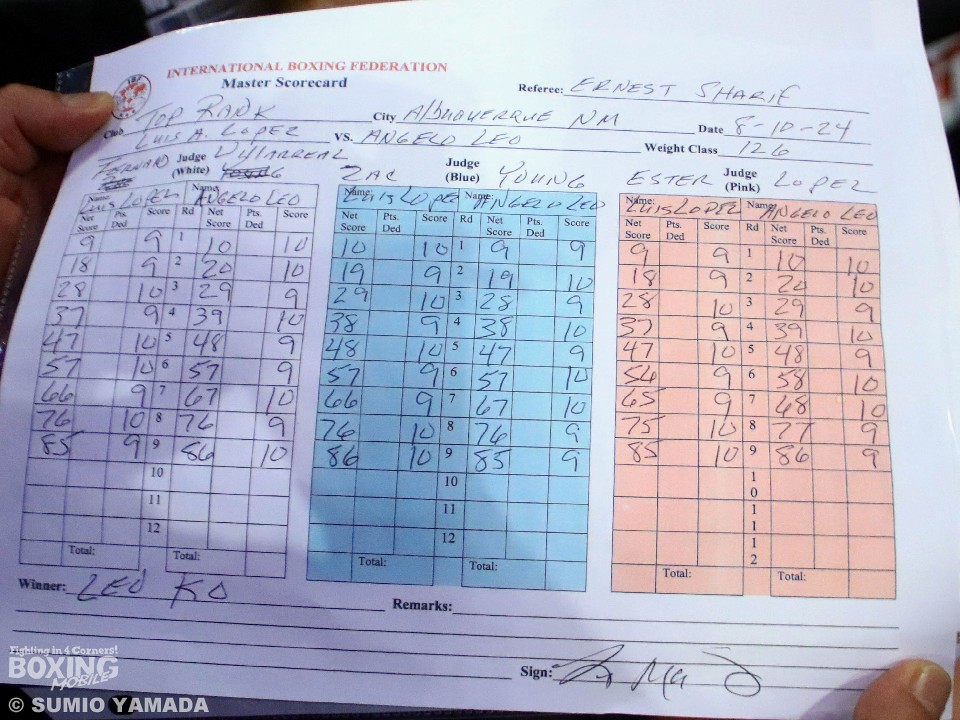 INTERNATIONAL BOXING FEDERATION
Master Scorecard
Referee: ERNEST SHARIF
Club TOP RANK City Albuquerque NM Date 8-10-24
LUIS A. LOPEZ VS. ANGELO LEO Weight Class 126
Judge (White) VillARREAL
Judge (Blue) ZAC YOUNG
Judge (Pink) ESTER LOPEZ
Name: LUIS LOPEZ Name: ANGELO LEO Name: LUIS LOPEZ Name: ANGELO LEO Name: LUIS LOPEZ Name: ANGELO LEO
Net Score Pts. Ded Score Rd Net Score Pts. Ded Score Net Score Pts. Ded Score Rd Net Score Pts. Ded Score Net Score Pts. Ded Score Rd Net Score Pts. Ded Score
9 9 1 10 10 10 10 1 9 9 9 9 1 10 10
18 9 2 20 10 19 9 2 19 10 18 9 2 20 10
28 10 3 29 9 29 10 3 28 9 28 10 3 29 9
37 9 4 39 10 38 9 4 38 10 37 9 4 39 10
47 10 5 48 9 48 10 5 47 9 47 10 5 48 9
57 10 6 57 9 57 9 6 57 10 56 9 6 58 10
66 9 7 67 10 66 9 7 67 10 65 9 7 68 10
76 10 8 76 9 76 10 8 76 9 75 10 8 77 9
85 9 9 86 10 86 10 9 85 9 85 10 9 86 9
10 10 10
11 11 11
12 12 12
Total: Total: Total: Total: Total: Total:
Winner: LEO KO Remarks:
Sign:
Fighting in 4 Corners!
BOXING
MOBILE
© SUMIO YAMADA